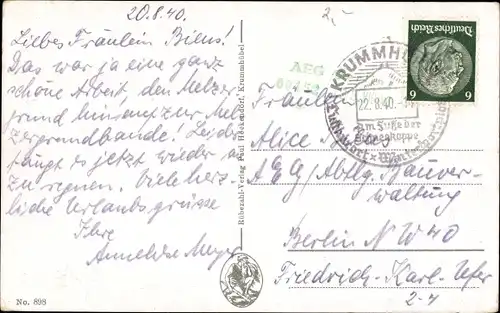 20.8.40.
Liebes Fräulein Biens!
Das war ja eine ganz
schöne Arbeit, den Melzer-
grund hinauf zur Mel-
zergrundbaude! Leider
fängt es jetzt wieder an
zu regnen. Viele herz-
liche Urlaubsgrüsse
Ihre
Anneliese Meyer
No. 898
Rübezahl-Verlag Paul Höckendorf, Krummhübel
2,-
AEG
Deutsches Reich
6 6
KRUMMHÜ
22.8.40.
Am Fuße der
Schneekoppe
Fräulein
Alice Biens
AEG/Abtlg. Bauver-
waltung
Berlin NW 40
Friedrich-Karl-Ufer
2-4